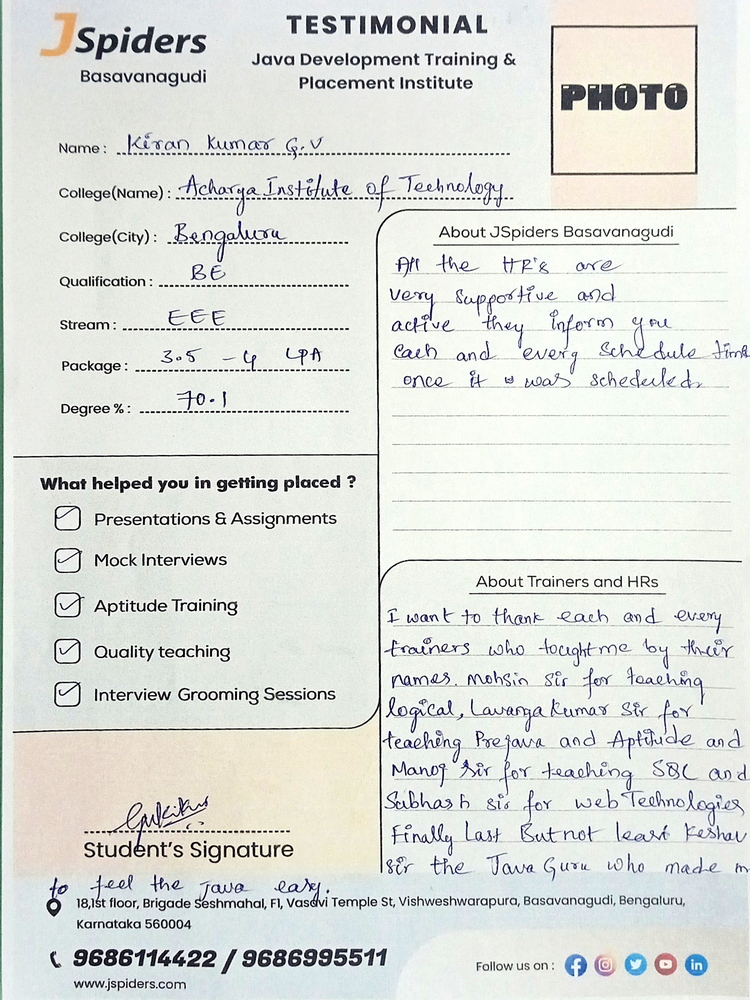 JSpiders
Basavanagudi
TESTIMONIAL
Java Development Training &
Placement Institute
PHOTO
Name : Kiran Kumar G.V
College(Name) : Acharya Institute of Technology
College(City) : Bengaluru
Qualification : BE
Stream : EEE
Package : 3.5 - 4 LPA
Degree % : 70.1
What helped you in getting placed ?
Presentations & Assignments
Mock Interviews
Aptitude Training
Quality teaching
Interview Grooming Sessions
Student's Signature
About JSpiders Basavanagudi
All the HR's are
very supportive and
active they inform you
each and every schedule time
once it was scheduled.
About Trainers and HRs
I want to thank each and every
trainers who tought me by their
names. Mohsin sir for teaching
logical, Lavanya Kumar Sir for
teaching Prejava and Aptitude and
Manoj Sir for teaching SQL and
Subhash sir for web Technologies
Finally Last But not least Keshav
sir the Java Guru who made m
to feel the java easy.
18,1st floor, Brigade Seshmahal, F1, Vasavi Temple St, Vishweshwarapura, Basavanagudi, Bengaluru,
Karnataka 560004
9686114422 / 9686995511
www.jspiders.com
Follow us on :